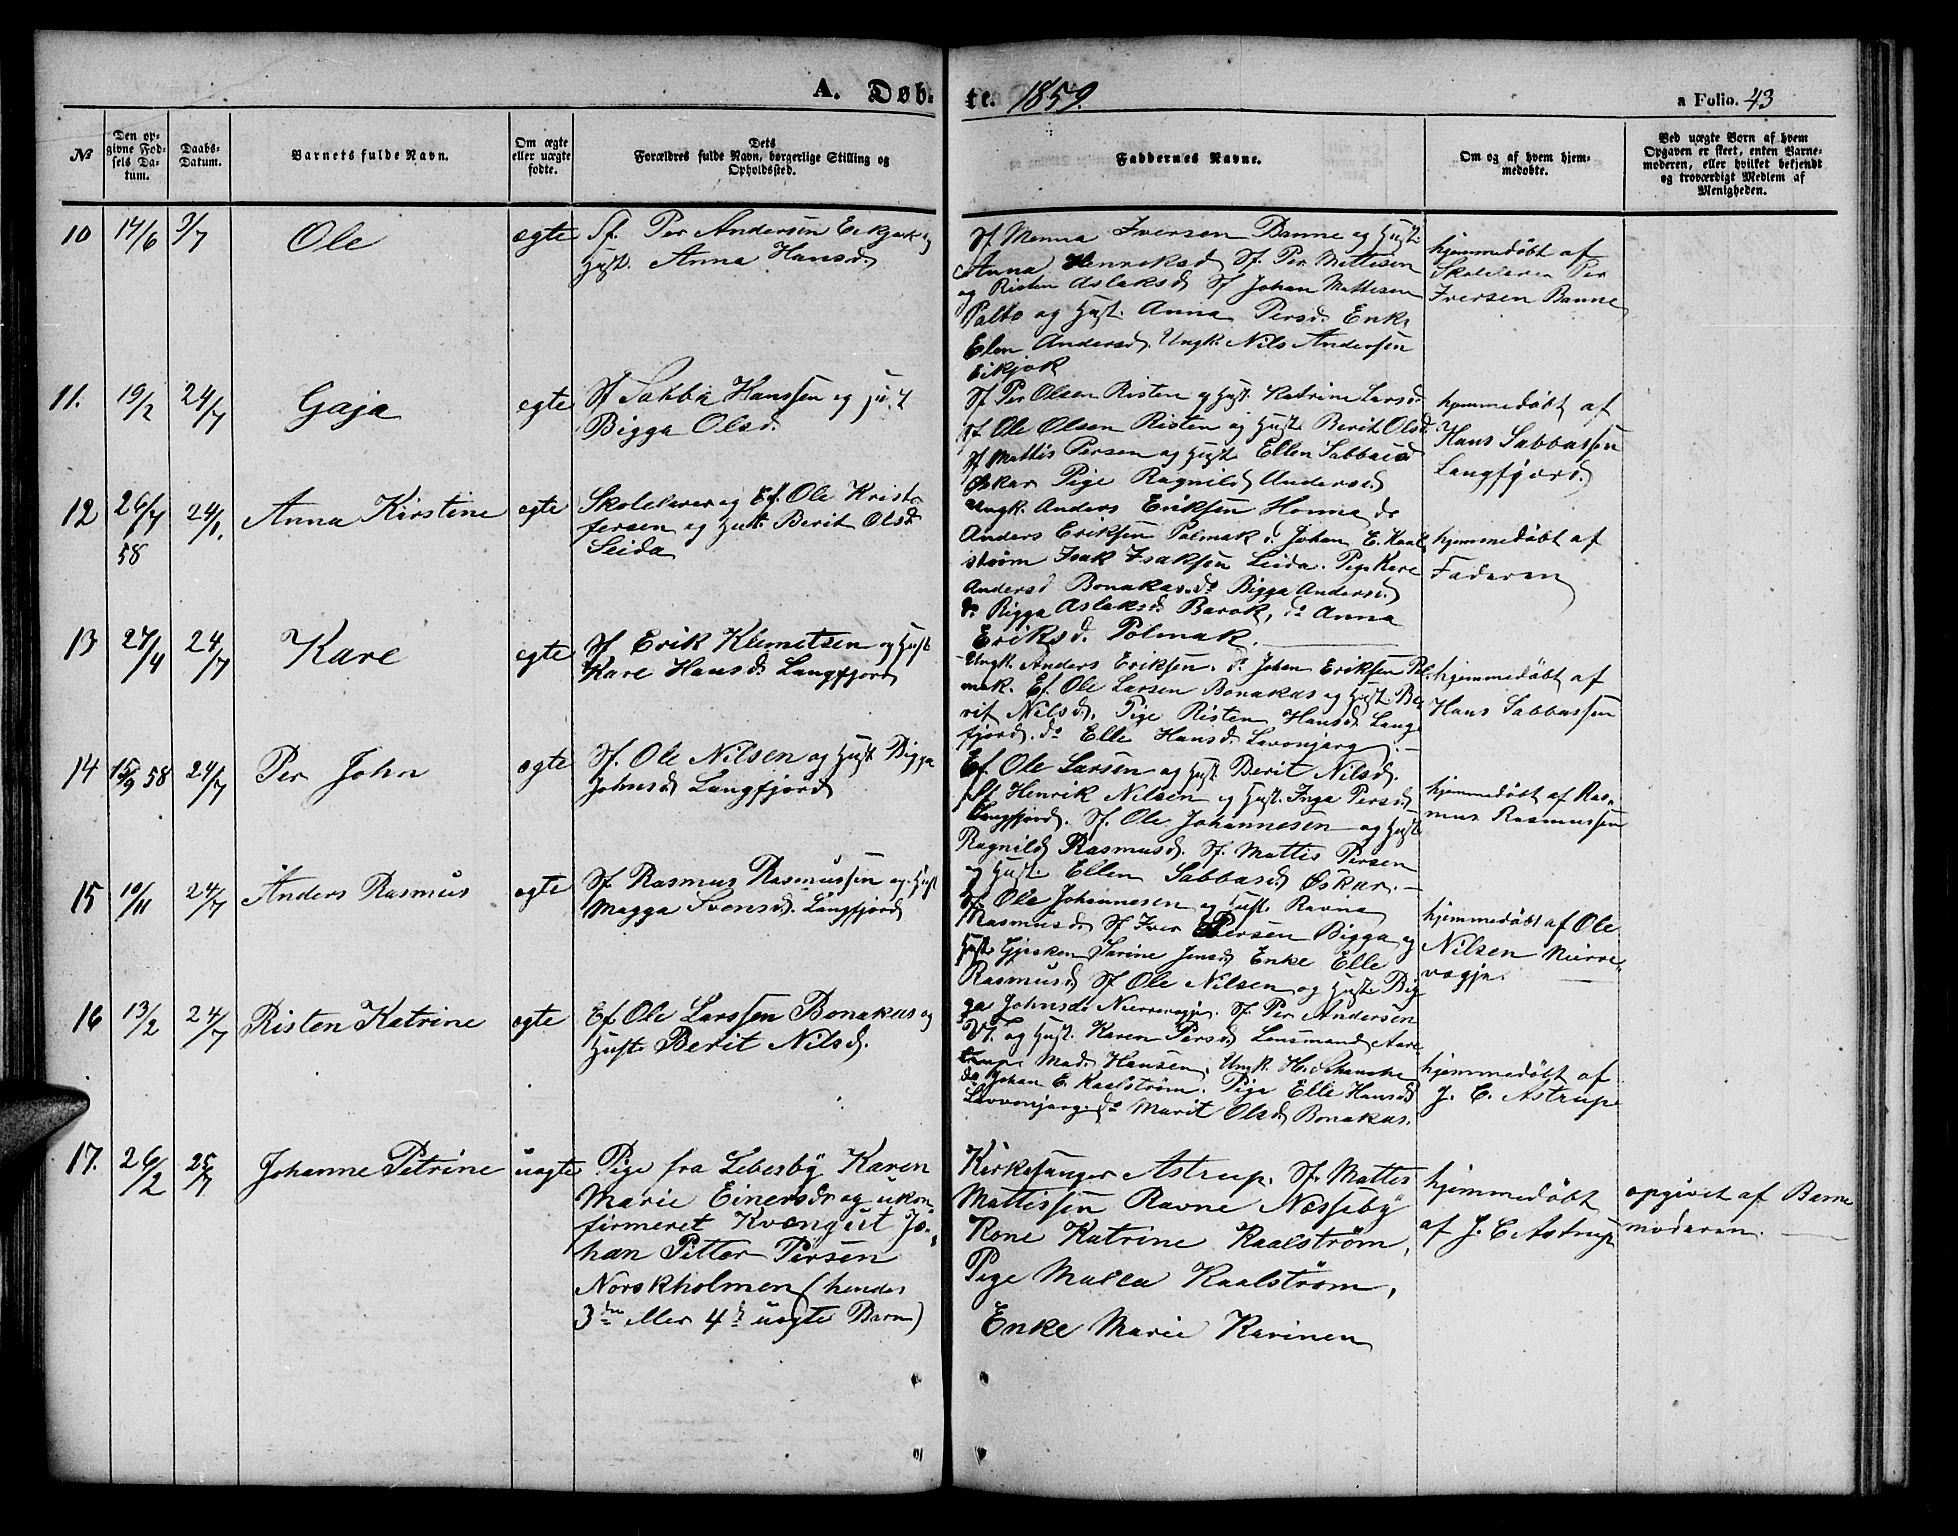 A. Døb- te. 1859.
a Folio. 43
№
Den op-
givne Fød-
sels Da-
tum.
Daabs-
Datum.
Barnets fulde Navn.
Om ægte
eller uægte
fødte.
Dets
Forældres fulde Navn, borgerlige Stilling og
Opholdssted.
Faddernes Navne.
Om og af hvem hjem-
medøbte.
Ved uægte Børn af hvem
Opgaven er skeet, enten Barne-
moderen, eller hvilket bekjendt
og troværdigt Medlem af
Menigheden.
10 14/6 3/7 Ole ægte Sf. Per Andersen Eikjok og
Hust. Anna Hansd
Sf Monna Iversen Banne og Hust.
Anna Henriksd Sf. Per Mattisen
og Risten Aslaksd Sf Johan Mattisen
Palto og Hust. Anna Persd. Enke
Elen Andersd. Ungk. Nils Andersen
Eikjok
hjemmedøbt af
Skolelærer Per
Iversen Banne
11. 19/2 24/7 Gaja egte Sf Sabba Hanssen og Hust
Bigga Olsd.
Sf Per Olsen Risten og Hust. Katrine Larsd.
Sf. Ole Olsen Risten og Hust. Berit Olsd
Sf Mattis Persen og Hust Ellen Sabbasd
Øskar Pige Ragnild Andersd
hjemmedøbt af
Hans Sabbassen
Langfjord.
12 26/7 58 24/7. Anna Kirstine egte Skolelærer og Ef. Ole Kristo
fersen og Hust. Berit Olsd.
Seida
Ungk. Anders Eriksen Honna do
Anders Eriksen Polmak d. Johan E. Kaal
strøm Isak Isaksen Seida. Pige Kare
Andersd Bonakas. do Bigga Andersd
do Bigga Aslaksd. Barok, do Anna
Eriksd. Polmak
hjemmedøbt af
Faderen
13 27/4 24/7 Kare egte Sf Erik Klemetsen og Hust
Kare Hansd Langfjord
Ungk. Anders Eriksen. do Johan Eriksen Pol
mak. Ef. Ole Larsen Bonakas og Hust. Be
rit Nilsd. Pige Risten Hansd. Lang
fjord. do Elle Hansd. Lavonjarg.
hjemmedøbt af
Hans Sabbassen
14 15/9 58 24/7 Per John egte Sf. Ole Nilsen og Hust Bigga
Johnsd Langfjord
Ef. Ole Larsen og Hust. Berit Nilsd.
Sf Henrik Nilsen og Hust. Inga Persd
Langfjord. Sf. Ole Johannesen og Hust.
Ragnild Rasmusd. Sf. Mattis Persen
og Hust. Ellen Sabbasd Øskar.
hjemmedøbt af Ras-
mus Rasmussen
15 10/11 24/7 Anders Rasmus egte Sf Rasmus Rasmussen og Hust
Magga Svensd. Langfjord
Sf Ole Johannesen og Hust. Ravna
Rasmusd Sf Iver Persen Bigga og
Hust. Sarine Jensd Enke Elle
Rasmusd Sf Ole Nilsen og Hust. Big
ga Johnsd. Sf. Per Andersen
hjemmedøbt af Ole
Nilsen Nierre-
vagja.
16 13/2 24/7 Risten Katrine egte Ef Ole Larssen Bonakas og
Hust. Berit Nilsd.
og Hust. Karen Persd Lensmand Aare
Mad. Hansen, Ungk.
do Johan E. Kaalstrøm. Pige Elle Hansd
Lavvonjarg do Marit Olsd Bonakas.
hjemmedøbt af
J. C. Astrup
17. 26/2 25/7 Johanne Petrine uægte Pige fra Lebesby Karen
Marie Einersdr og ukon
firmeret Kvængut Jo-
han Petter Persen
Norskholmen (hendes
3die eller 4d uægte Barn)
Kirkesanger Astrup. Sf. Mattes
Mattissen Ravne Næsseby
Kone Katrine Kaalstrøm,
Pige Kaalstrøm,
Enke Marie Karinen
hjemmedøbt
af J. C. Astrup
opgivet af Barne
moderen.